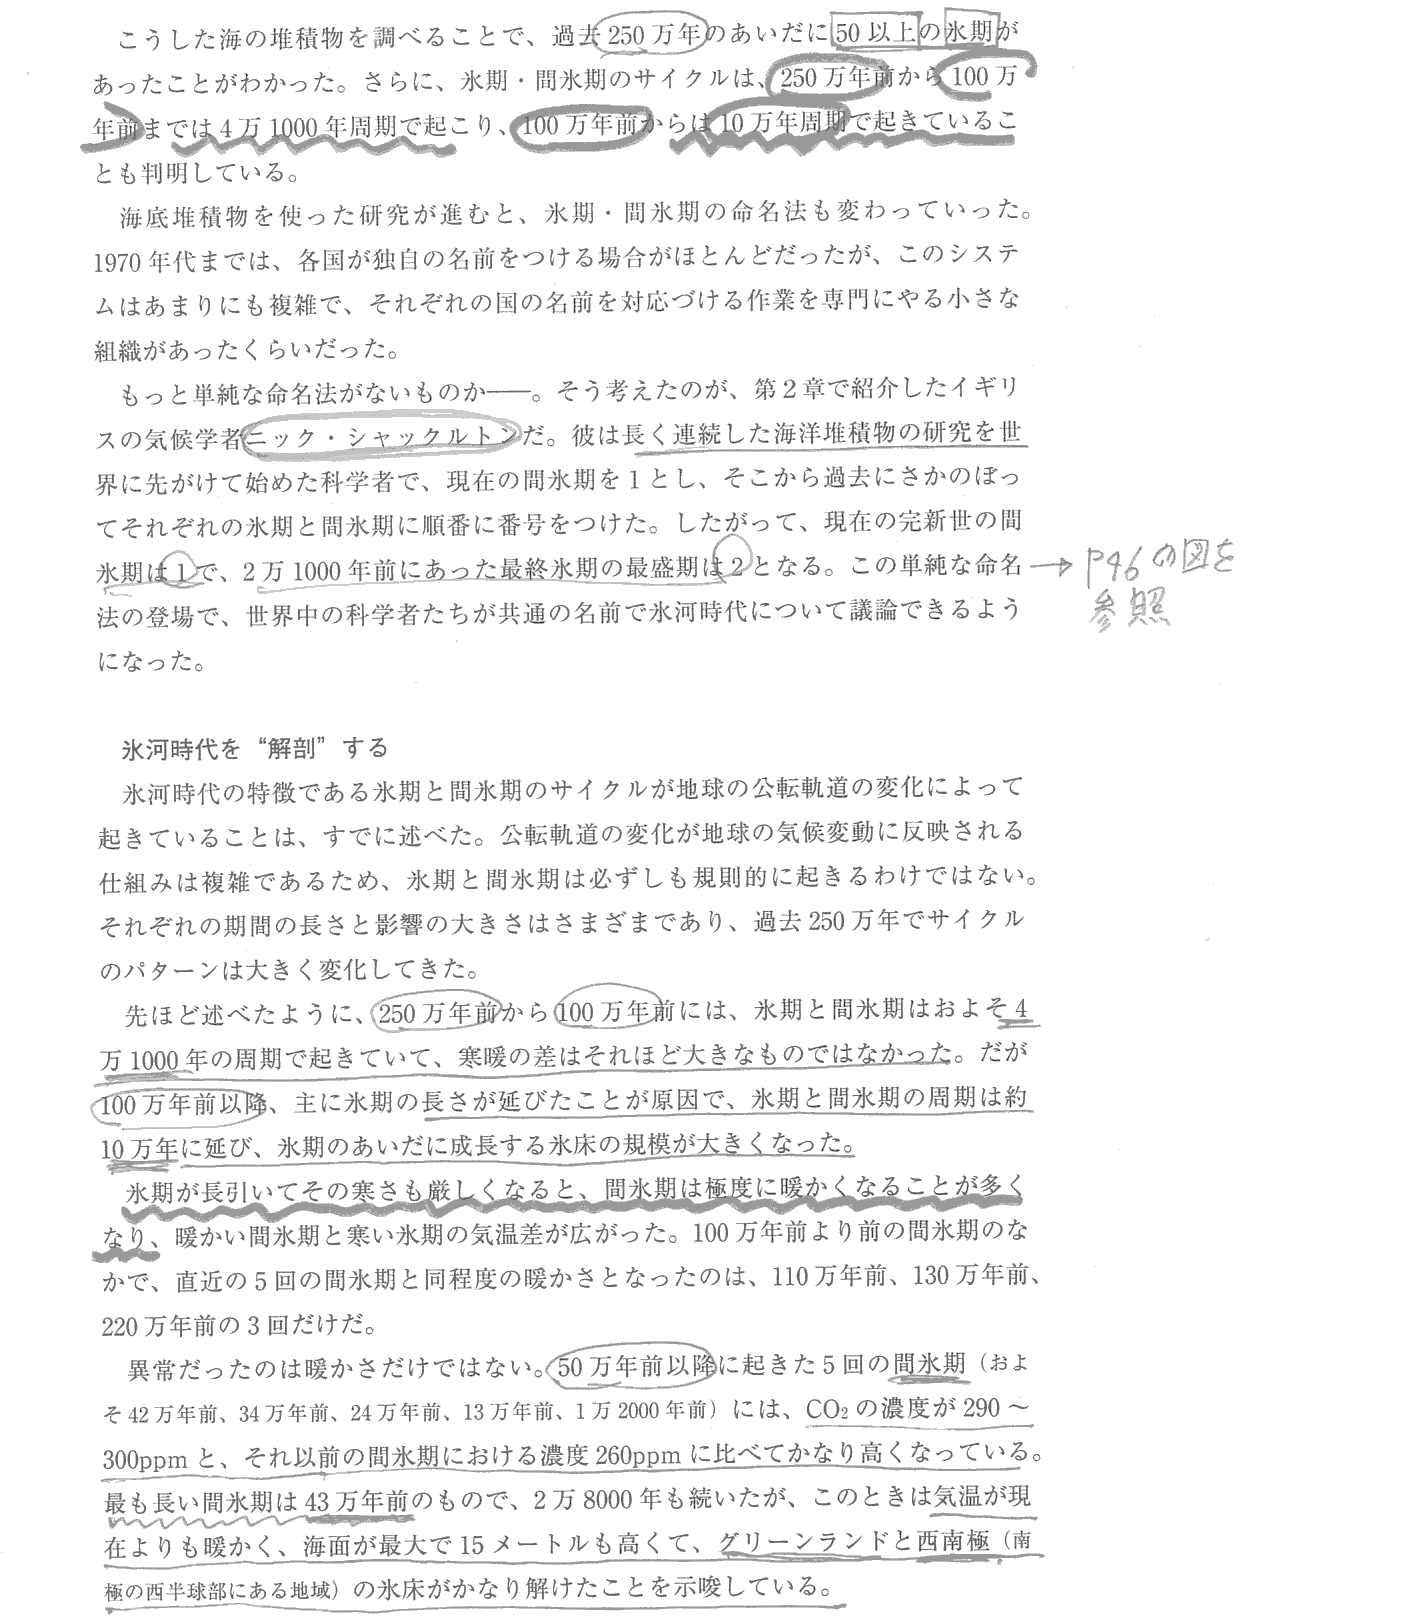 こうした海の堆積物を調べることで、過去250万年のあいだに50以上の氷期が
あったことがわかった。さらに、氷期・間氷期のサイクルは、250万年前から100万
年前までは4万1000年周期で起こり、100万年前からは10万年周期で起きているこ
とも判明している。
海底堆積物を使った研究が進むと、氷期・間氷期の命名法も変わっていった。
1970年代までは、各国が独自の名前をつける場合がほとんどだったが、このシステ
ムはあまりにも複雑で、それぞれの国の名前を対応づける作業を専門にやる小さな
組織があったくらいだった。
もっと単純な命名法がないものか――。そう考えたのが、第2章で紹介したイギリ
スの気候学者ニック・シャックルトンだ。彼は長く連続した海洋堆積物の研究を世
界に先がけて始めた科学者で、現在の間氷期を1とし、そこから過去にさかのぼっ
てそれぞれの氷期と間氷期に順番に番号をつけた。したがって、現在の完新世の間
氷期は1で、2万1000年前にあった最終氷期の最盛期は2となる。この単純な命名
→P46の図を
参照
法の登場で、世界中の科学者たちが共通の名前で氷河時代について議論できるよう
になった。
氷河時代を“解剖”する
氷河時代の特徴である氷期と間氷期のサイクルが地球の公転軌道の変化によって
起きていることは、すでに述べた。公転軌道の変化が地球の気候変動に反映される
仕組みは複雑であるため、氷期と間氷期は必ずしも規則的に起きるわけではない。
それぞれの期間の長さと影響の大きさはさまざまであり、過去250万年でサイクル
のパターンは大きく変化してきた。
先ほど述べたように、250万年前から100万年前には、氷期と間氷期はおよそ4
万1000年の周期で起きていて、寒暖の差はそれほど大きなものではなかった。だが
100万年前以降、主に氷期の長さが延びたことが原因で、氷期と間氷期の周期は約
10万年に延び、氷期のあいだに成長する氷床の規模が大きくなった。
氷期が長引いてその寒さも厳しくなると、間氷期は極度に暖かくなることが多く
なり、暖かい間氷期と寒い氷期の気温差が広がった。100万年前より前の間氷期のな
かで、直近の5回の間氷期と同程度の暖かさとなったのは、110万年前、130万年前、
220万年前の3回だけだ。
異常だったのは暖かさだけではない。50万年前以降に起きた5回の間氷期（およ
そ42万年前、34万年前、24万年前、13万年前、1万2000年前）には、CO₂の濃度が290～
300ppmと、それ以前の間氷期における濃度260ppmに比べてかなり高くなっている。
最も長い間氷期は43万年前のもので、2万8000年も続いたが、このときは気温が現
在よりも暖かく、海面が最大で15メートルも高くて、グリーンランドと西南極（南
極の西半球部にある地域）の氷床がかなり解けたことを示唆している。